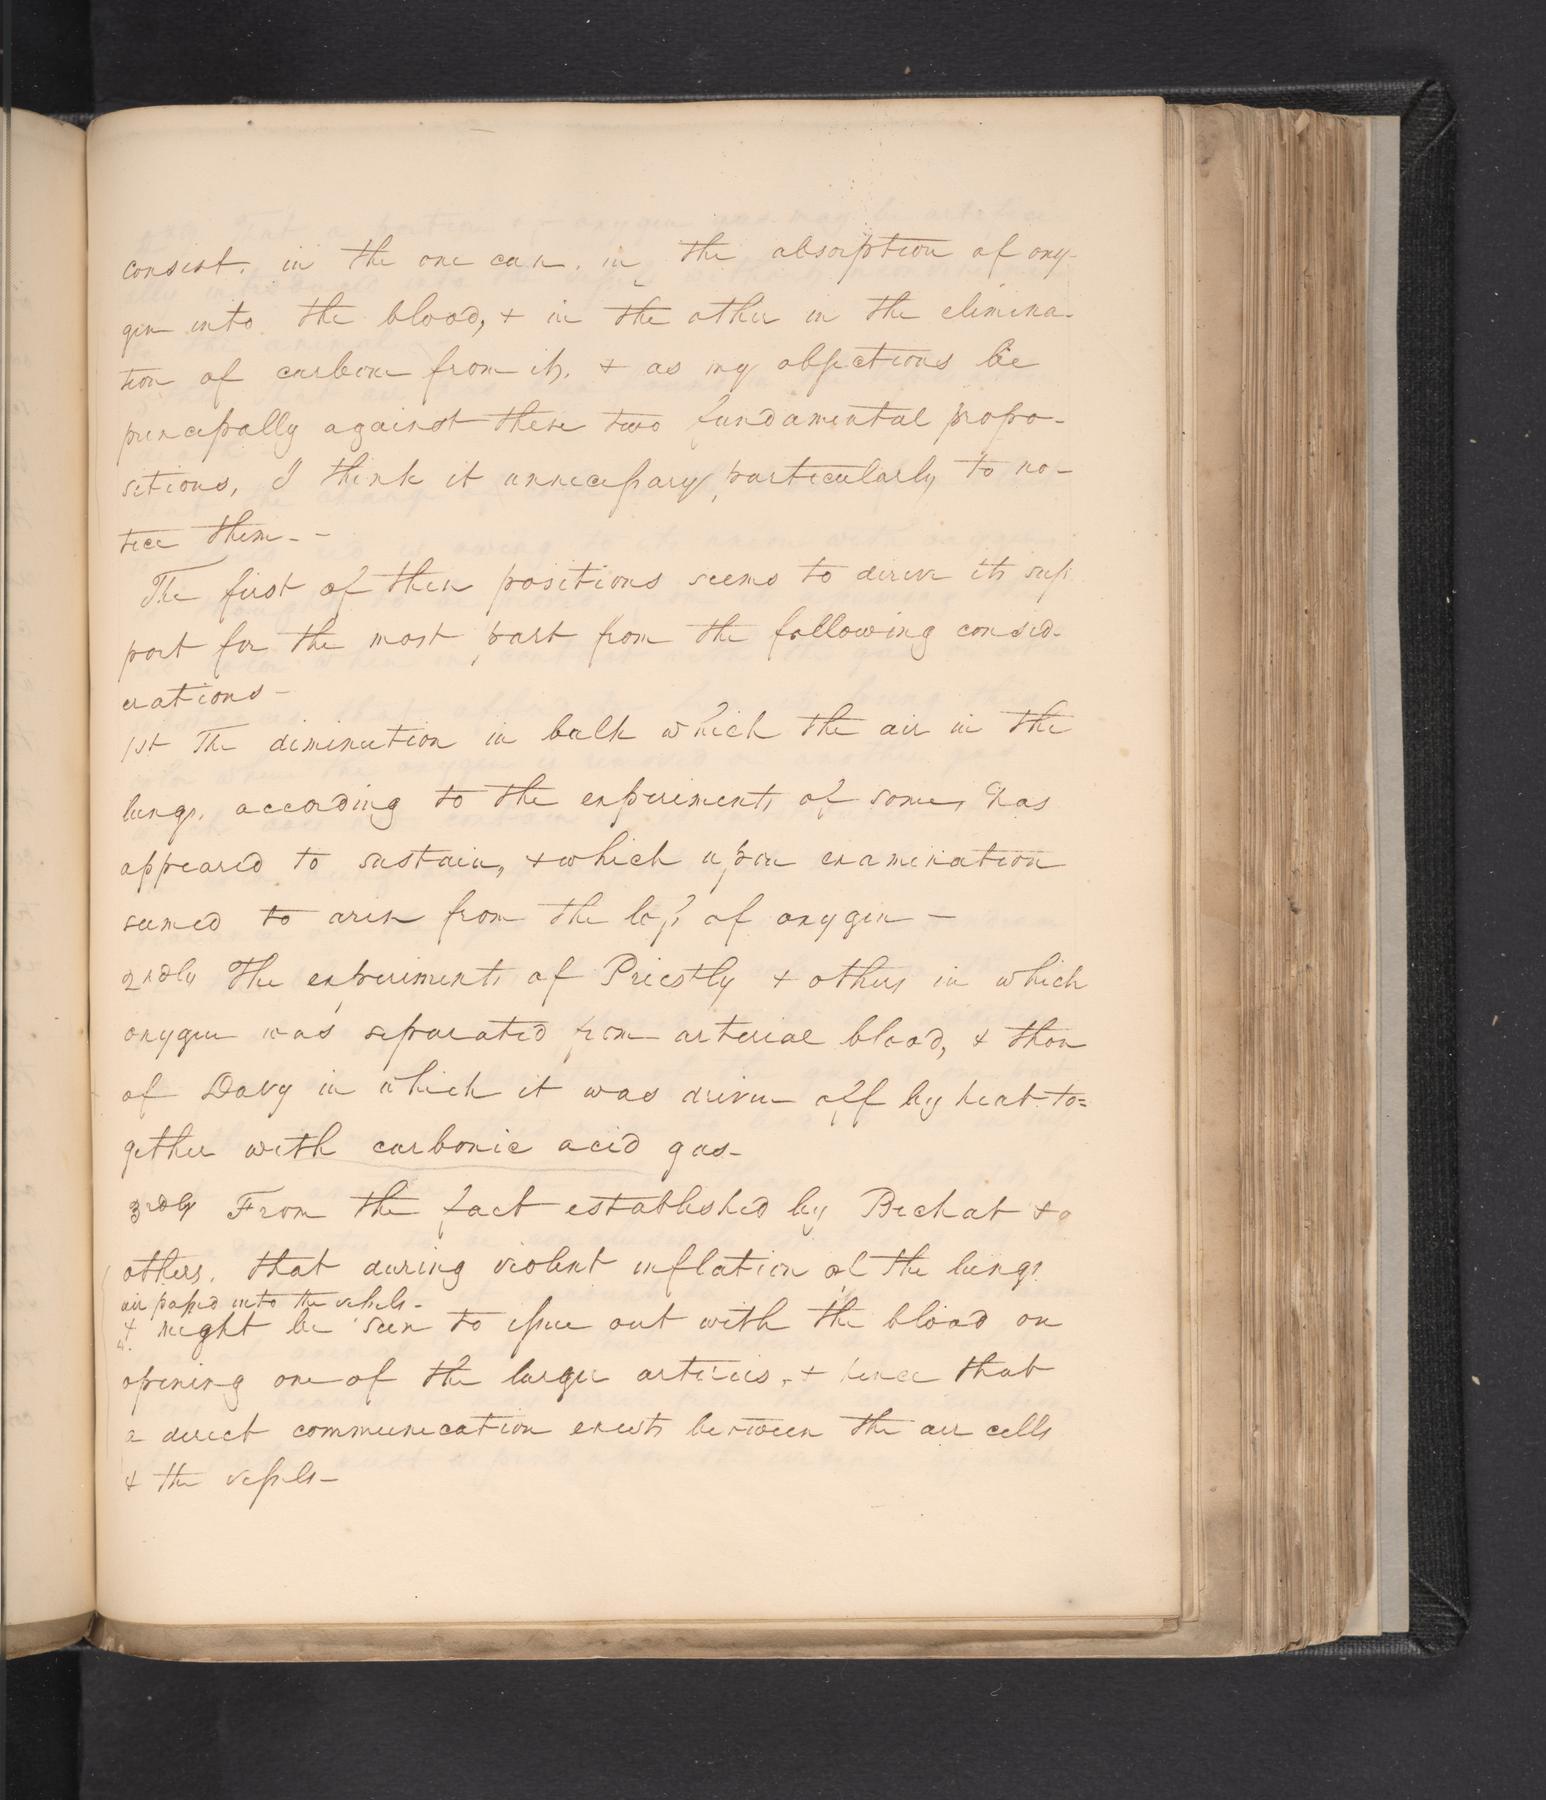 consist, in the one case, in the absorption of oxy-
gen into the blood, & in the other in the elimina-
tion of carbone from it, & as my objections lie
principally against these two fundamental propo-
sitions, I think it unnecessary particularly to no-
tice them. -
The first of these positions seems to derive its sup
port for the most part from the following consid-
erations -
1st The diminution in bulk which the air in the
lungs, according to the experiments of some, has
appeared to sustain, & which upon examination
seemed to arise from the loss of oxygen -
2ndly The experiments of Priestly & others in which
oxygen was separated from arterial blood, & those
of Davy in which it was driven off by heat to=
gether with carbonic acid gas-
3rdly From the fact established by Bichat & o
others, that during violent inflation of the lungs
air passed into the vessels -
& might be seen to issue out with the blood on
opening one of the larger arteries, & hence that
a direct communication exists between the air cells
& the vessels -